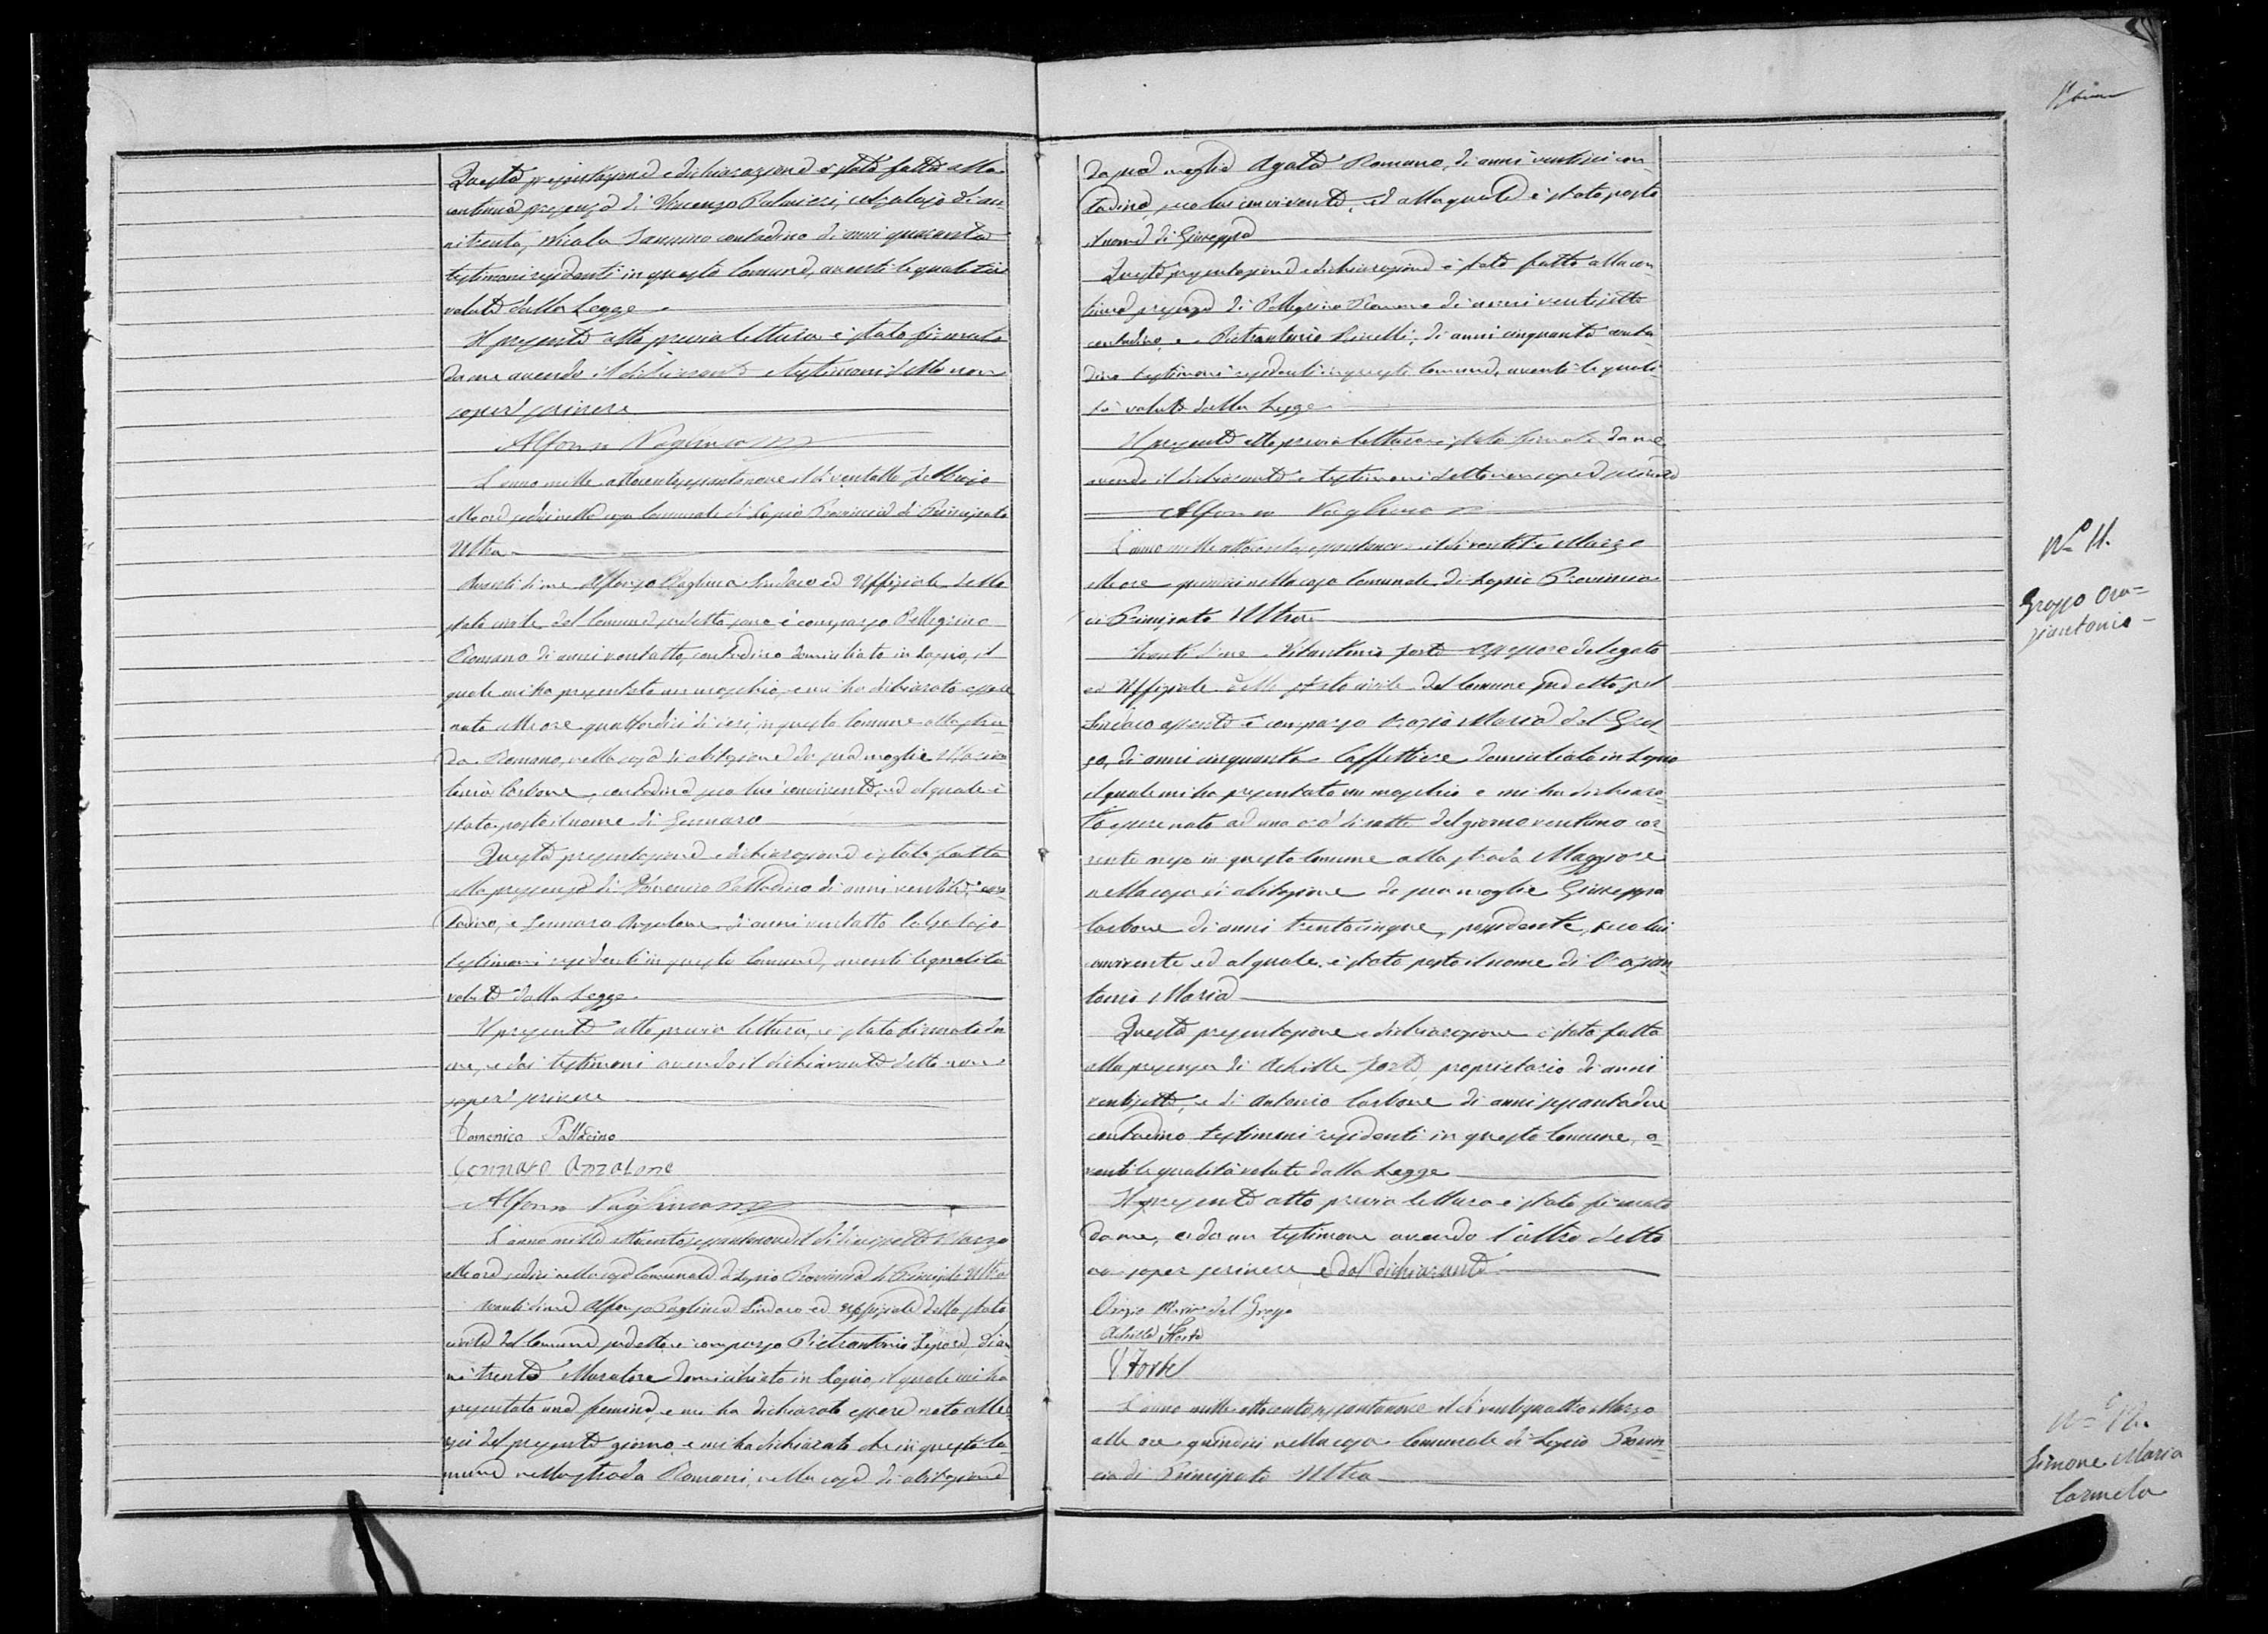 Questa presentazione e dichiarazione è stata fatta alla
continua presenza di Vincenzo Palmieri, calzolajo di an-
ni trenta, Nicola Iannino contadino di anni quaranta
testimoni residenti in questo Comune, aventi le qualità
volute dalla Legge
Il presente atto previa lettura è stato firmato
da me avendo il dichiarante e testimoni detto non
saper scrivere
Alfonso
L'anno mille ottocentosessantanove il di ventotto Febbrajo
alle ore sedici nella casa Comunale di Lapio Provincia di Principato
Ultra
Avanti di me Alfonso Sindaco ed Uffiziale dello
stato civile del Comune sudetto è comparso Pellegrino
Romano di anni ventotto, contadino domiciliato in Lapio, il
quale mi ha presentato un maschio, e mi ha dichiarato essere
nato alle ore quattordici di jeri, in questo Comune alla stra-
da Romano, nella casa di abitazione di sua moglie Maria
Carbone, contadina seco lui convivente, ed al quale è
stato posto il nome di Gennaro
Questa presentazione e dichiarazione è stata fatta
alla presenza di Domenico Palladino di anni con-
tadino, e Gennaro Anzalone di anni ventotto calzolajo
testimoni residenti in questo Comune, aventi le qualità
volute dalla Legge
Il presente atto previa lettura, è stato firmato da
me, e dai testimoni avendo il dichiarante detto non
saper scrivere
Domenico Palladino
Gennaro Anzalone
Alfonso
L'anno mille ottocentosessantanove il di diecisette Marzo
alle ore sedici nella casa Comunale di Lapio Provincia di Principato Ultra
Avanti di me Alfonso Sindaco ed uffiziale dello stato
civile del Comune sudetto è comparso Pietrantonio Lepore, di an-
ni trenta Muratore domiciliato in Lapio, il quale mi ha
presentato una femina, e mi ha dichiarato essere nata alle
sei del presente giorno e mi ha dichiarato che in questo Co-
mune nella strada Romani, nella casa di abitazione
da sua moglie Agata Romano, di anni con-
tadina, seco lui convivente, ed alla quale è stato posto
il nome di Giuseppa
Questa presentazione e dichiarazione è stata fatta alla con-
tinua presenza di Pellegrino Romano di anni ventisette
contadino, e Pietrantonio di anni cinquanta conta-
dino testimoni residenti in questo Comune, aventi le quali-
tà volute dalla Legge
Il presente atto previa lettura è stato firmato da me
avendo il dichiarante e testimoni detto non saper scrivere
Alfonso
L'anno mille ottocento sessantanove il di ventitre Marzo
alle ore quindici nella casa Comunale di Lapio Provincia
di Principato Ultra
Avanti di me Vitantonio Forte Assessore delegato
ed Uffiziale dello stato civile del Comune sudetto pel
Sindaco assente è comparso Orazio Maria del Gros-
so, di anni cinquanta Caffettiere domiciliato in Lapio
il quale mi ha presentato un maschio e mi ha dichiara-
to essere nato ad una ora di notte del giorno ventuno cor-
rente mese in questo Comune alla strada Maggiore
nella casa di abitazione di sua moglie Giuseppa
Carbone di anni trentacinque, possidente, seco lui
convivente ed al quale è stato posto il nome di Orazian-
tonio Maria
Questa presentazione e dichiarazione è stata fatta
alla presenza di Achille Forte, proprietario di anni
ventisette, e di Antonio Carbone di anni sessantadue
contadino testimoni residenti in questo Comune, a-
venti le qualità volute dalla Legge
Il presente atto previa lettura è stato firmato
da me, e da un testimone avendo l'altro detto
no saper scrivere, e dal dichiarante
Orazio Maria del Grosso
Achille Forte
V Forte
L'anno mille ottocento sessantanove il di ventiquattro Marzo
alle ore quindici nella casa Comunale di Lapio Provin-
cia di Principato Ultra
N° 11.
Grosso Ora=
ziantonio
N° 12.
Simone Maria
Carmela